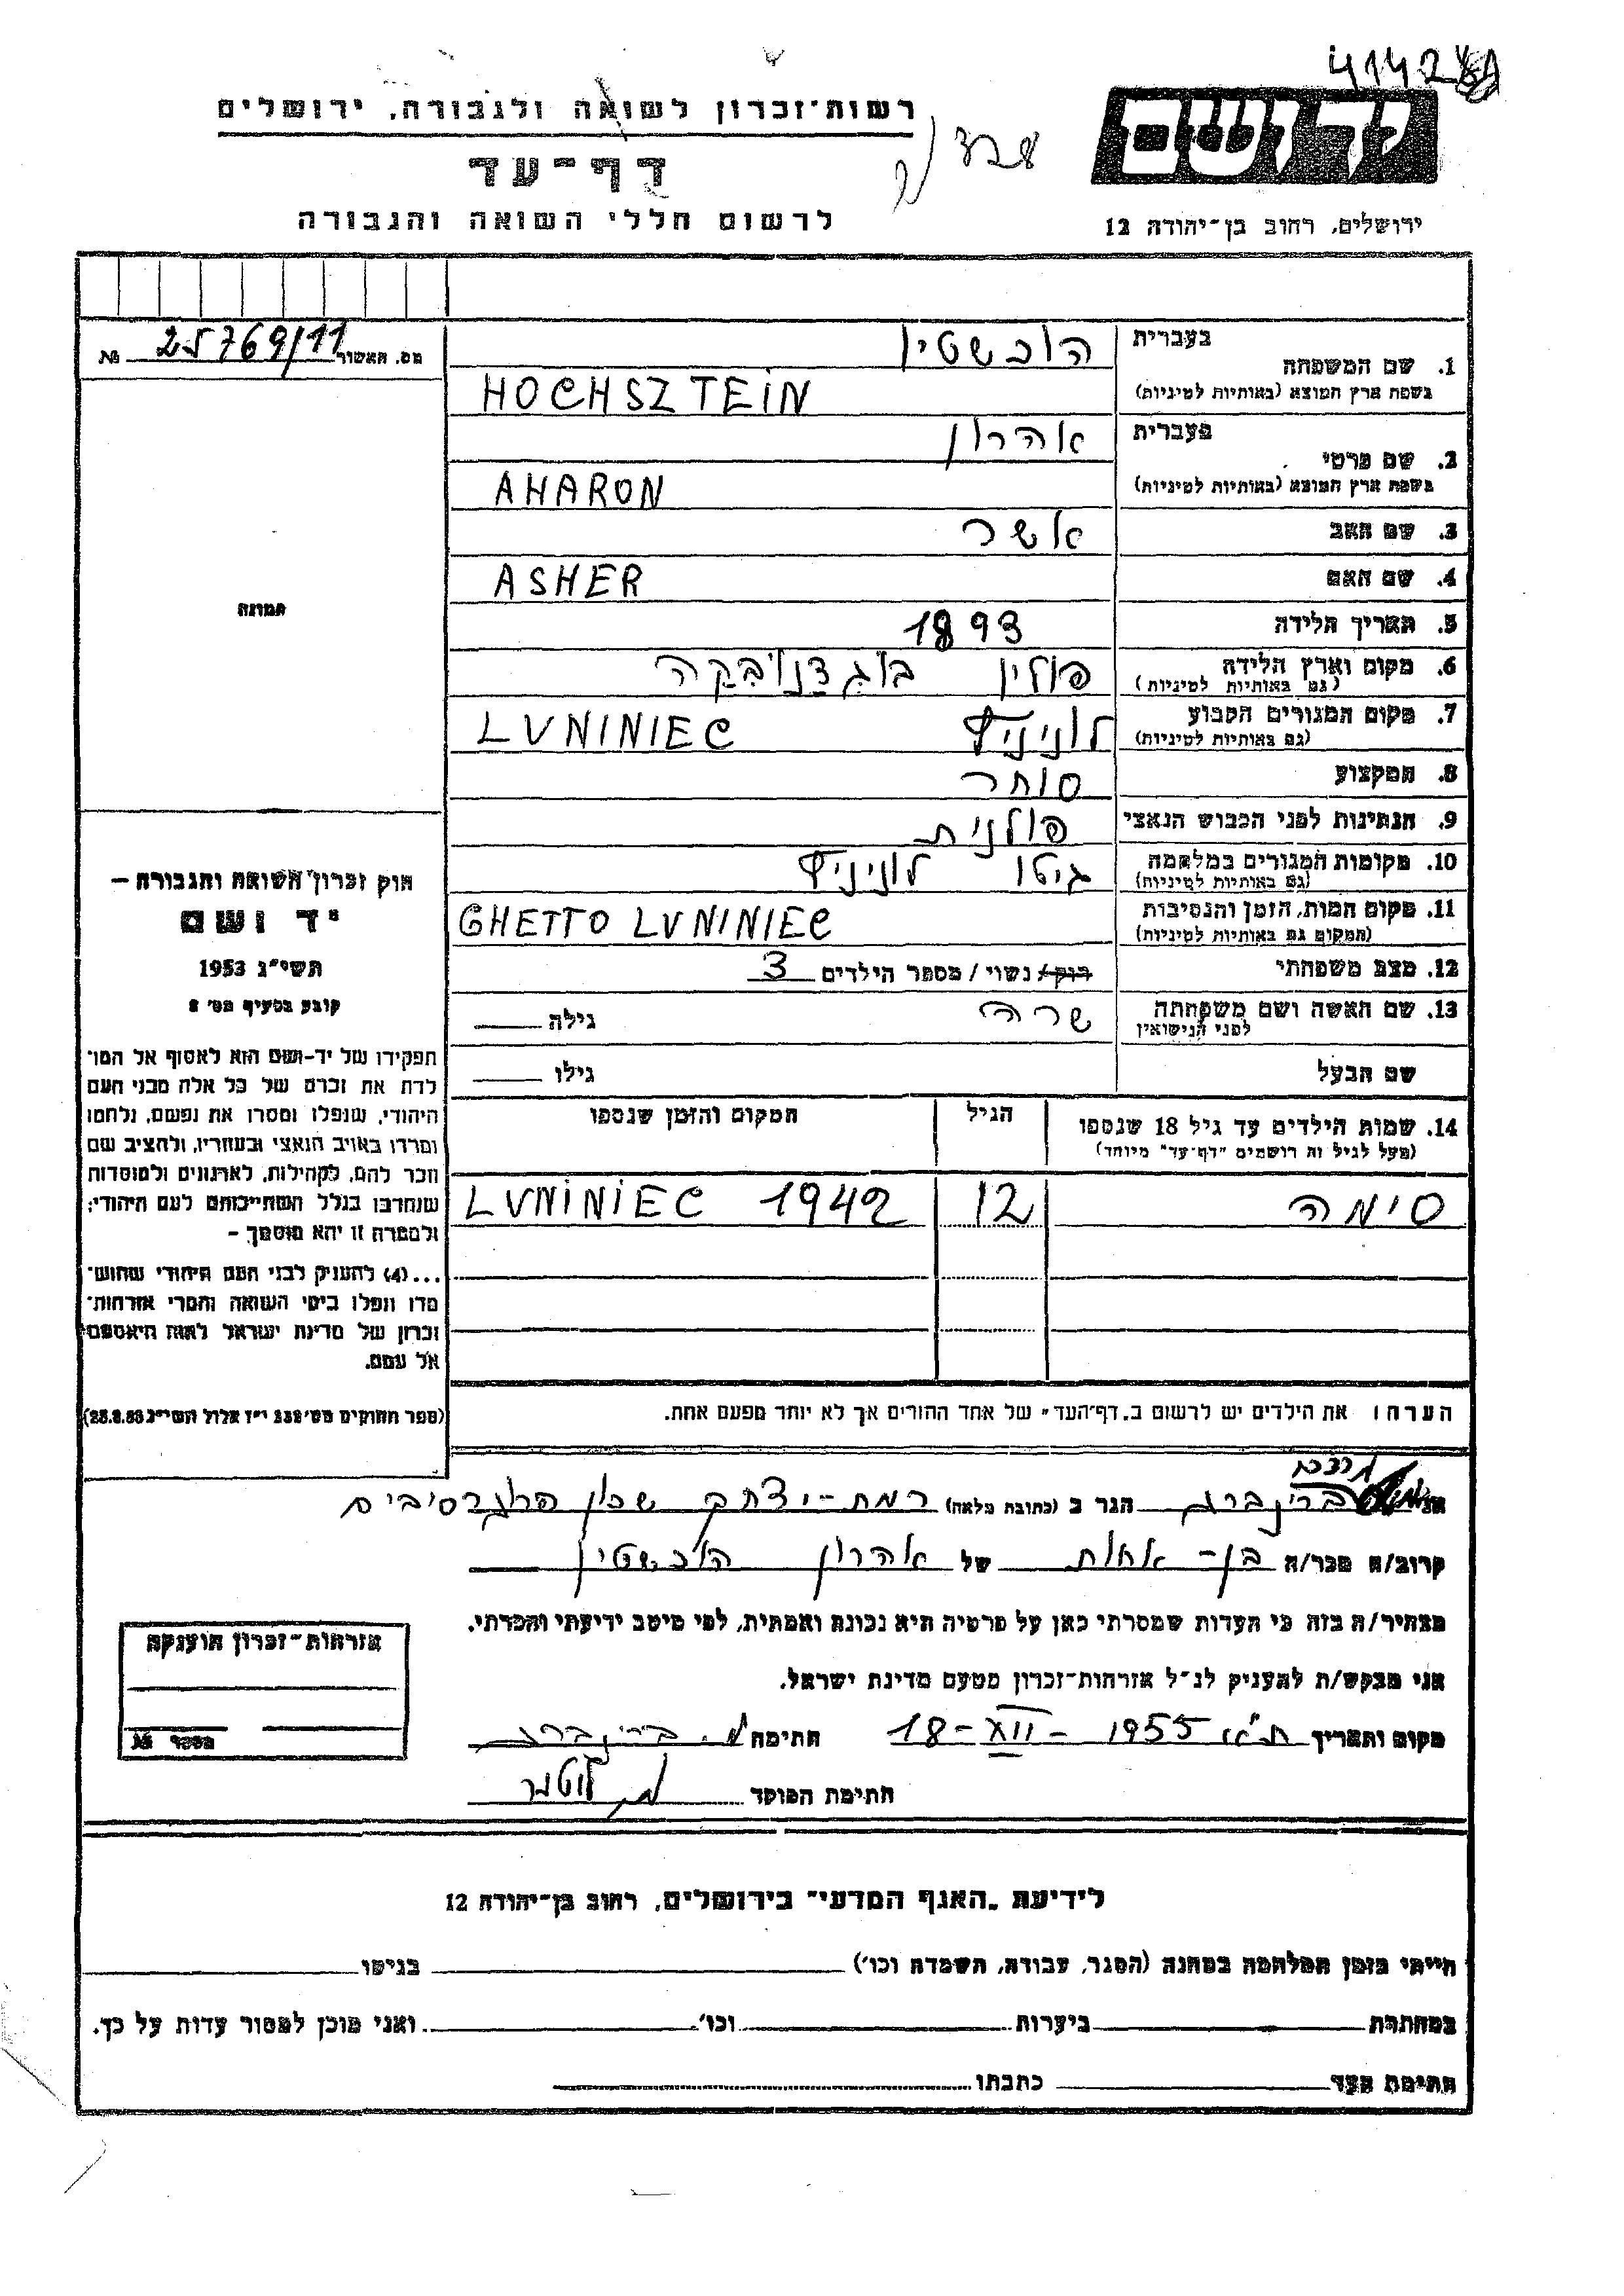 41428
ידושם
רשות־זכרון לשואה ולגבורה, ירושלים
דף־עד
לרשום חללי השואה והגבורה
ירושלים, רחוב בן־יהודה 12
מס. האשור 25769/11 №
1. שם המשפחה בעברית הוכשטין
בשפת ארץ המוצא (באותיות לטיניות) HOCHSZTEIN
2. שם פרטי בעברית אהרון
בשפת ארץ המוצא (באותיות לטיניות) AHARON
3. שם האב אשר
4. שם האם ASHER
5. תאריך הלידה 1893
6. מקום וארץ הלידה (גם באותיות לטיניות) פולין בוגדנובקה
7. מקום המגורים הקבוע (גם באותיות לטיניות) לוניניץ LUNINIEC
8. המקצוע סוחר
9. הנתינות לפני הכבוש הנאצי פולנית
10. מקומות המגורים במלחמה (גם באותיות לטיניות) גיטו לוניניץ
11. מקום המות, הזמן והנסיבות (המקום גם באותיות לטיניות) GHETTO LUNINIEC
12. מצב משפחתי רוק/ נשוי / מספר הילדים 3
13. שם האשה ושם משפחתה לפני הנישואין שרה גילה
שם הבעל גילו
14. שמות הילדים עד גיל 18 שנספו הגיל המקום והזמן שנספו
(מעל לגיל זה רושמים "דף־עד" מיוחד)
סימה 12 LUNINIEC 1942
הערה: את הילדים יש לרשום ב„דף־העד" של אחד ההורים אך לא יותר מפעם אחת.
תמונה
חוק זכרון השואה והגבורה –
יד ושם
תשי״ג 1953
קובע בסעיף מס׳ 2
תפקידו של יד-ושם הוא לאסוף אל המו־
לדת את זכרם של כל אלה מבני העם
היהודי, שנפלו ומסרו את נפשם, נלחמו
ומרדו באויב הנאצי ובעוזריו, ולהציב שם
וזכר להם, לקהילות, לארגונים ולמוסדות
שנחרבו בגלל השתייכותם לעם היהודי;
ולמטרה זו יהא מוסמך –
...(4) להעניק לבני העם היהודי שהוש־
מדו ונפלו בימי השואה והמרי אזרחות־
זכרון של מדינת ישראל לאות היאספם
אל עמם.
(ספר החוקים מס׳ 132 י״ז אלול תשי״ג 28.8.53)
אני ברינברג הגר ב (כתובת מלאה) רמת-יצחק שכון הפרוגרסיבים
קרוב/ה מכר/ה בן-אחות של אהרון הוכשטין
מצהיר/ה בזה כי העדות שמסרתי כאן על פרטיה היא נכונה ואמתית, לפי מיטב ידיעתי והכרתי.
אני מבקש/ת להעניק לנ״ל אזרחות־זכרון מטעם מדינת ישראל.
מקום ותאריך ת״א 18-XII-1955 חתימה מ. ברינברג
חתימת הפוקד
אזרחות־זכרון הוענקה
מספר №
לידיעת „האגף המדעי" בירושלים, רחוב בן־יהודה 12
הייתי בזמן המלחמה במחנה (הסגר, עבודה, השמדה וכו׳) בגיטו
במחתרת ביערות וכו׳ ואני מוכן למסור עדות על כך.
חתימת העד כתבתו